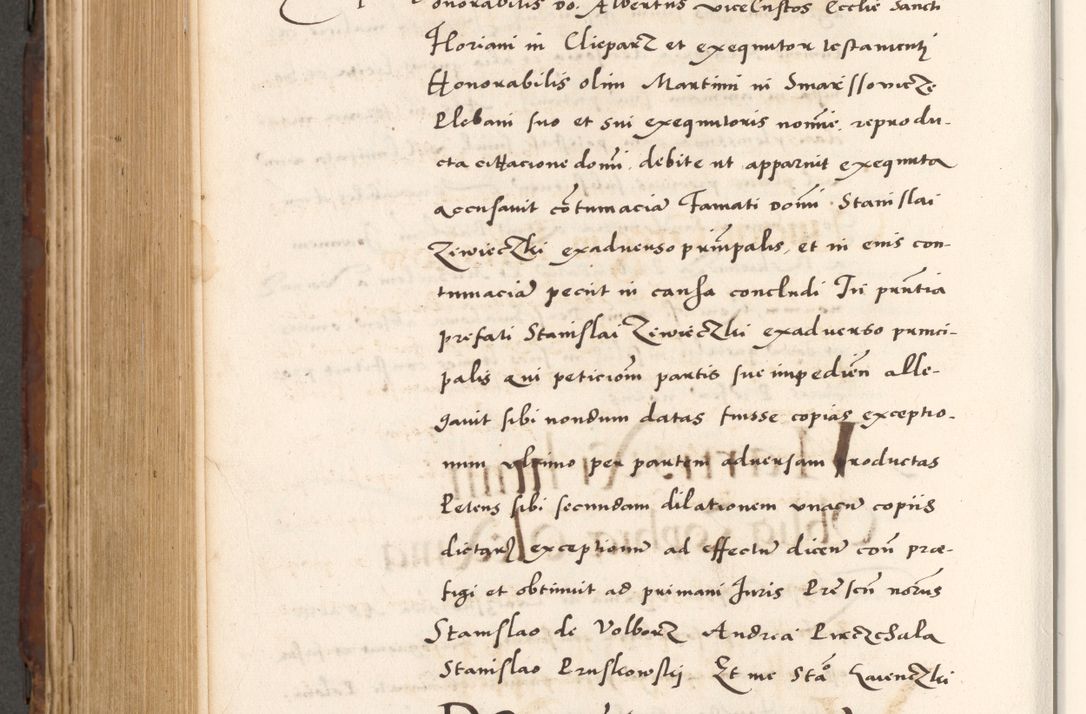 onorabilis do. Albertus viceCustos Ecclie Sancti
Floriani in Clieparz et exequutor testamenti
Honorabilis olim Martini in Smarssowicze
Plebani suo et sui exequutoris nomie. reprodu-
cta cittacione domi. debite ut apparuit exequuta
accusauit cotumacia Famati domi Stanislai
Ziwieczki exaduerso principalis, et in eius con-
tumacia peciit in causa concludi In pntia
prefati Stanislai Ziwieczki exaduerso princi-
palis qui peticiom partis sue impedien alle-
gauit sibi nondum datas fuisse copias exceptio-
num ultimo per partem aduersam productas
Petens sibi secundam dilationem unacu copiis
dictarz exceptionu ad effectu dicen con præ-
figi et obtinuit ad primam Juris Presen norus
Stanislao de Volborz Andrea Pieczchala
Stanislao Pruskowskj Et me Sta Gaienczki